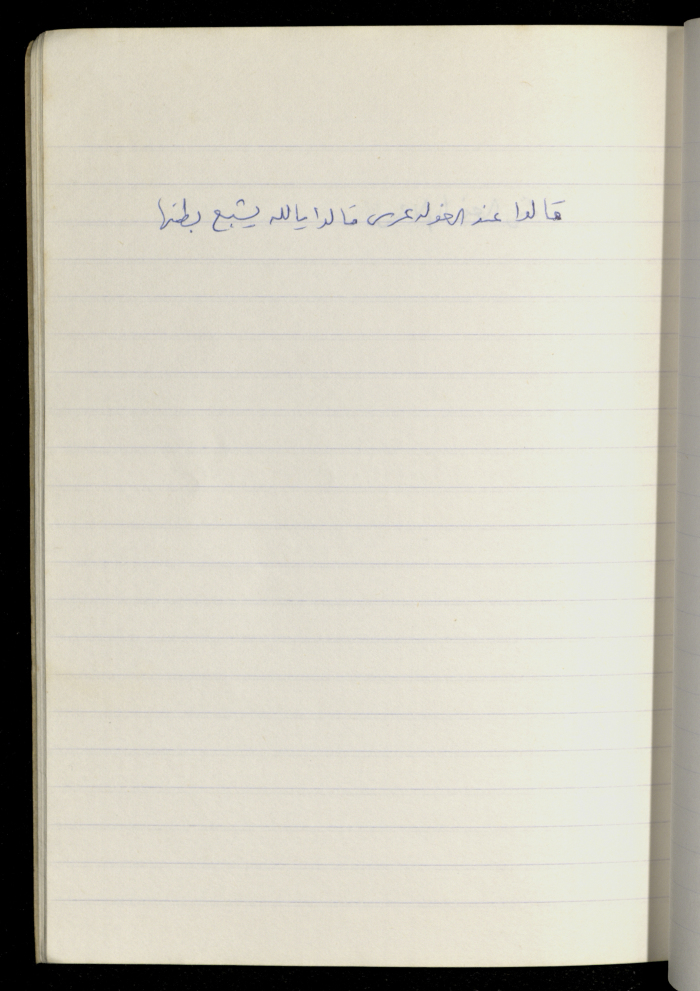 قالوا عند الغوله عرس قالوا يالله يشبع بطنها